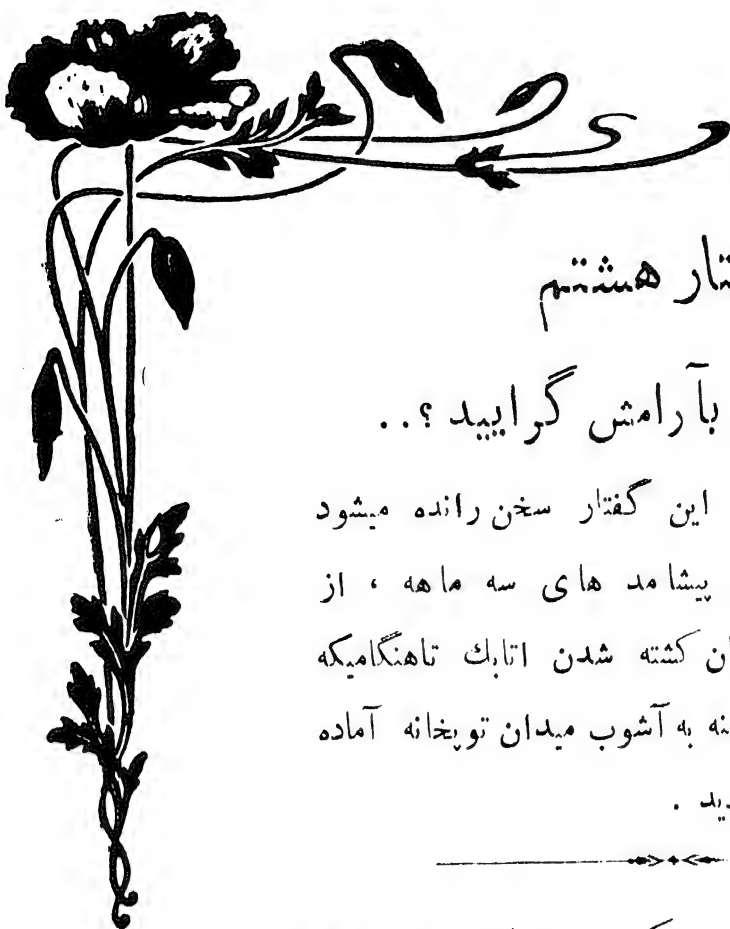 تار هشتم
بآرامش گرایید ؟..
این گفتار سخن رانده میشود
پیشامد های سه ماهه ، از
ان کشته شدن اتابك تاهنگامیکه
نه به آشوب میدان توپخانه آماده
ید .